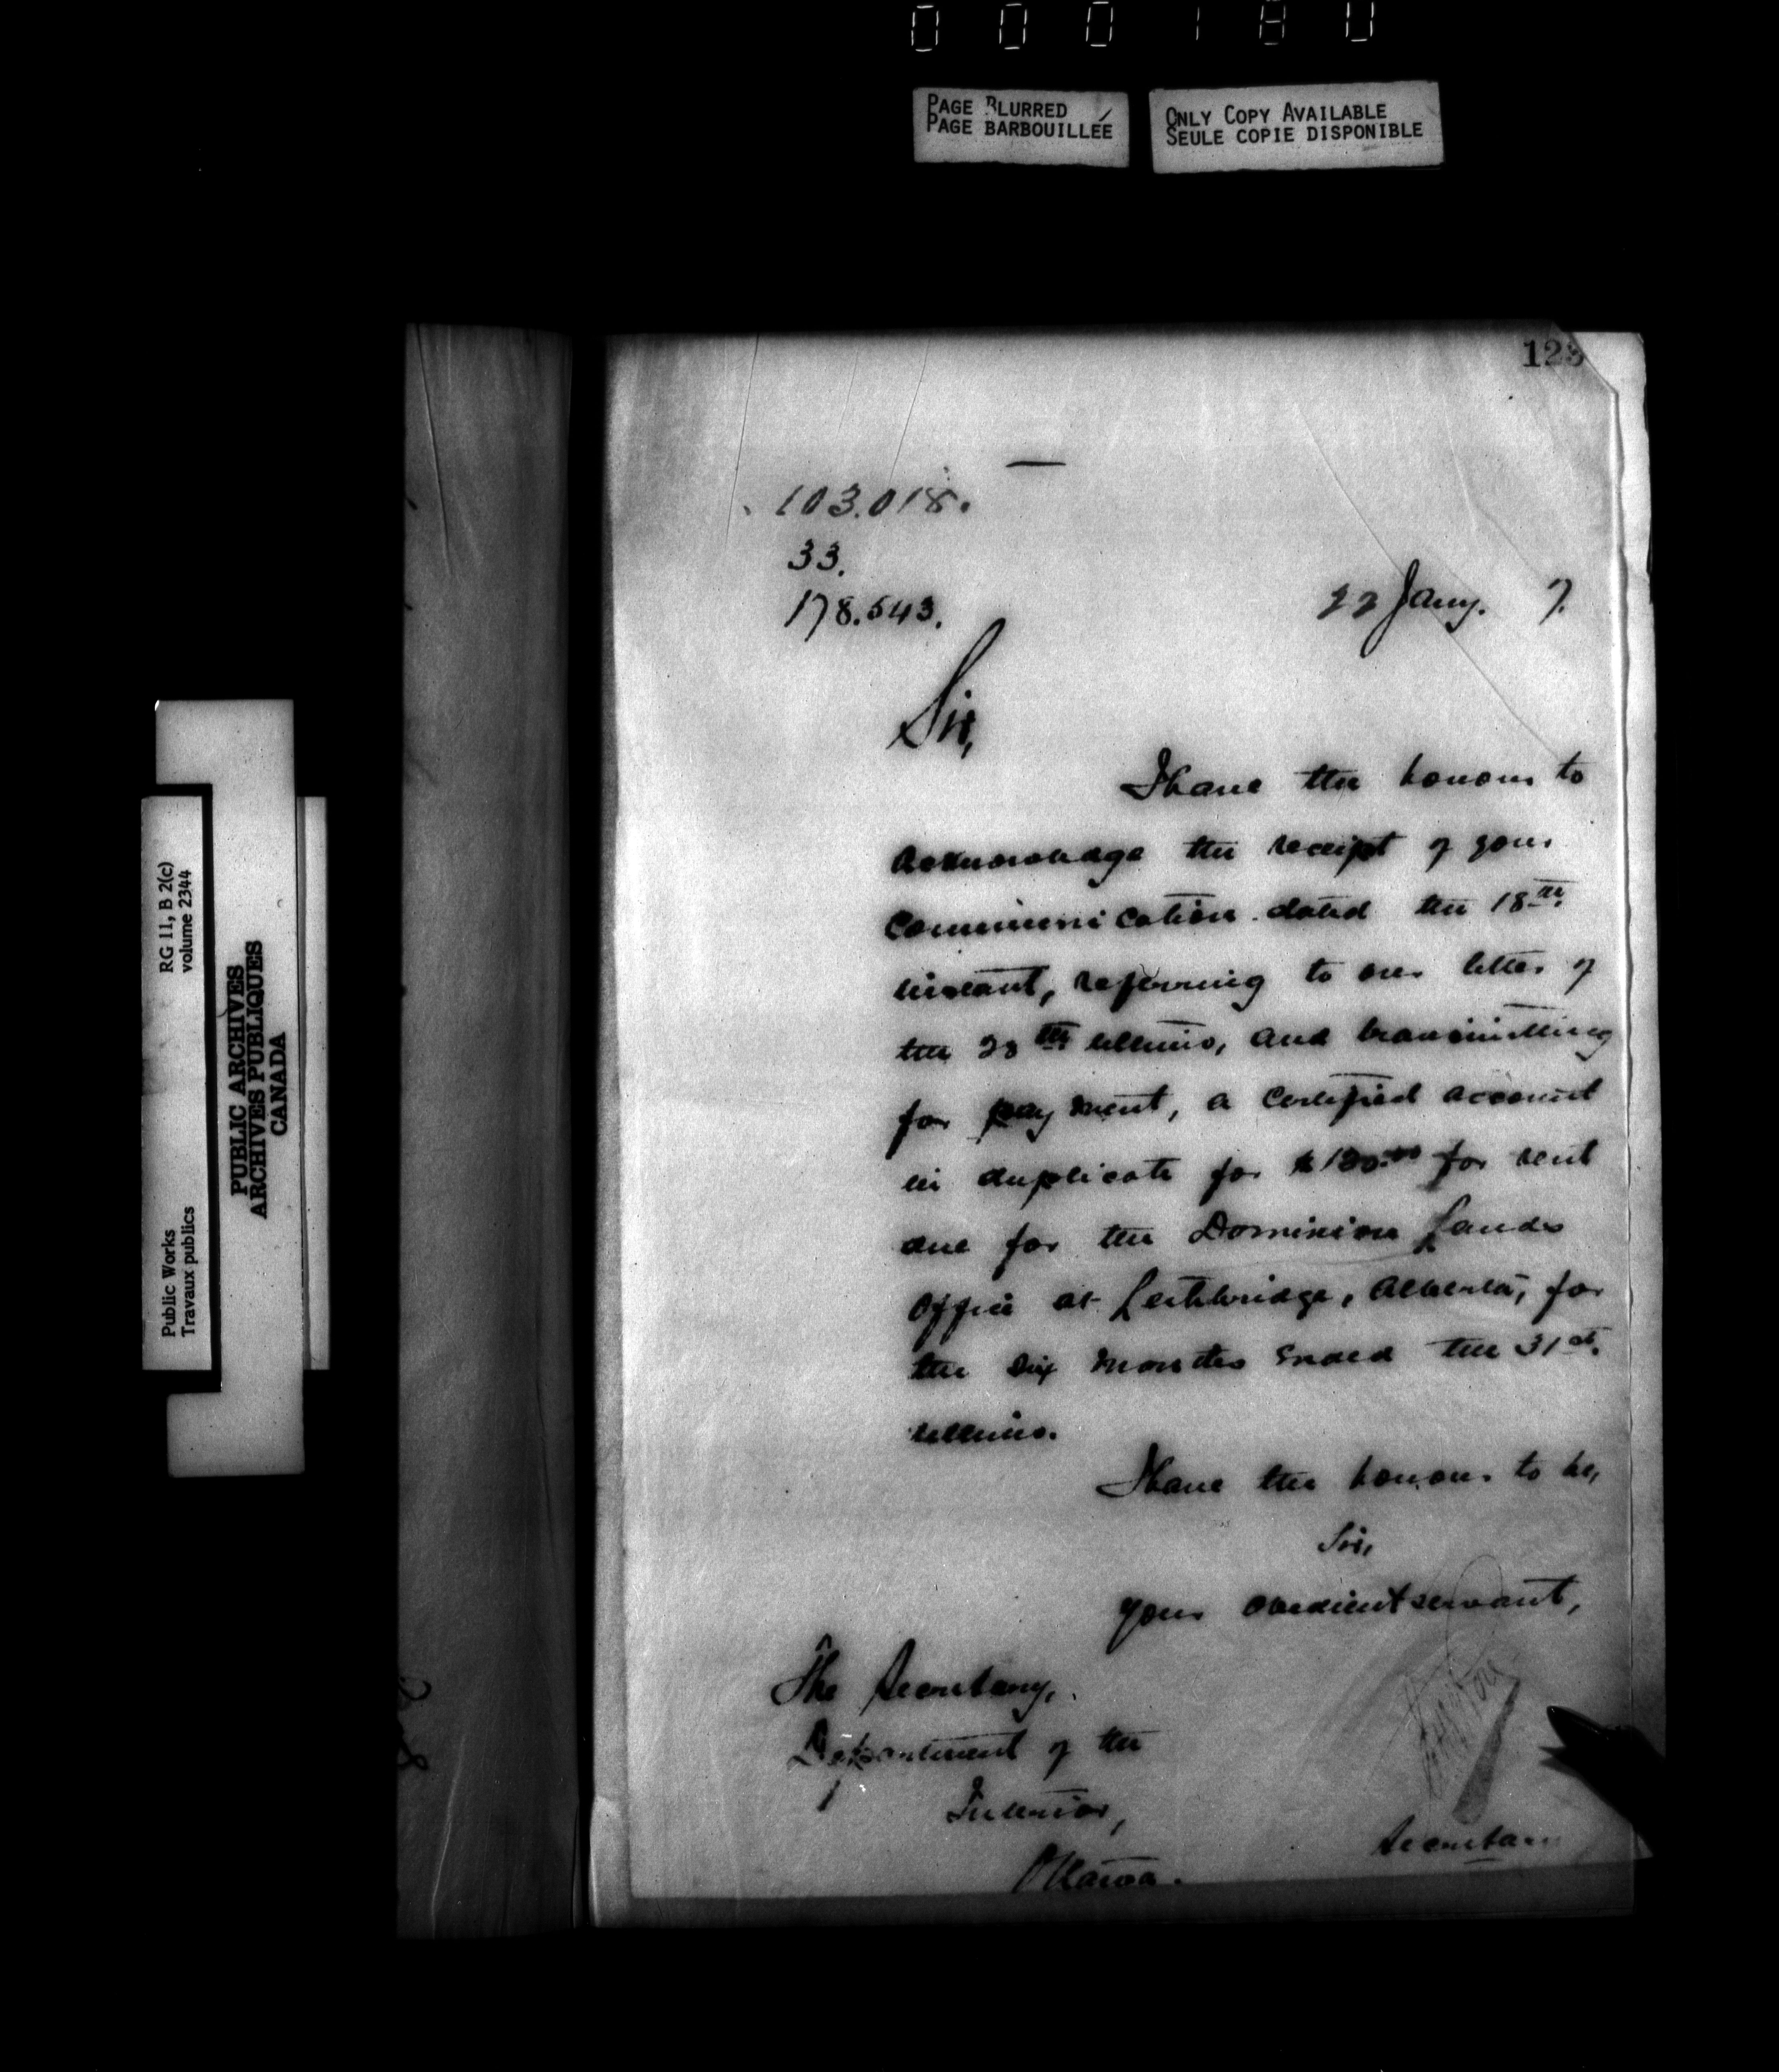 000180
PAGE BLURRED
PAGE BARBOUILLÉE
ONLY COPY AVAILABLE
SEULE COPIE DISPONIBLE
RG 11, B 2(c)
volume 2344
PUBLIC ARCHIVES
ARCHIVES PUBLIQUES
CANADA
Public Works
Travaux publics
123
103.018.
33.
178.543.
22 Jany. 7.
Sir,
I have the honour to
acknowledge the receipt of your
communication dated the 18th
instant, referring to our letter of
the 28th ultimo, and transmitting
for payment, a certified account
in duplicate for for rent
due for the Dominion Lands
Office at Lethbridge, Alberta, for
the six months ended the 31st.
ultimo.
I have the honour to be,
Sir,
your obedient servant,
The Secretary,
Department of the
Interior,
Ottawa.
Secretary